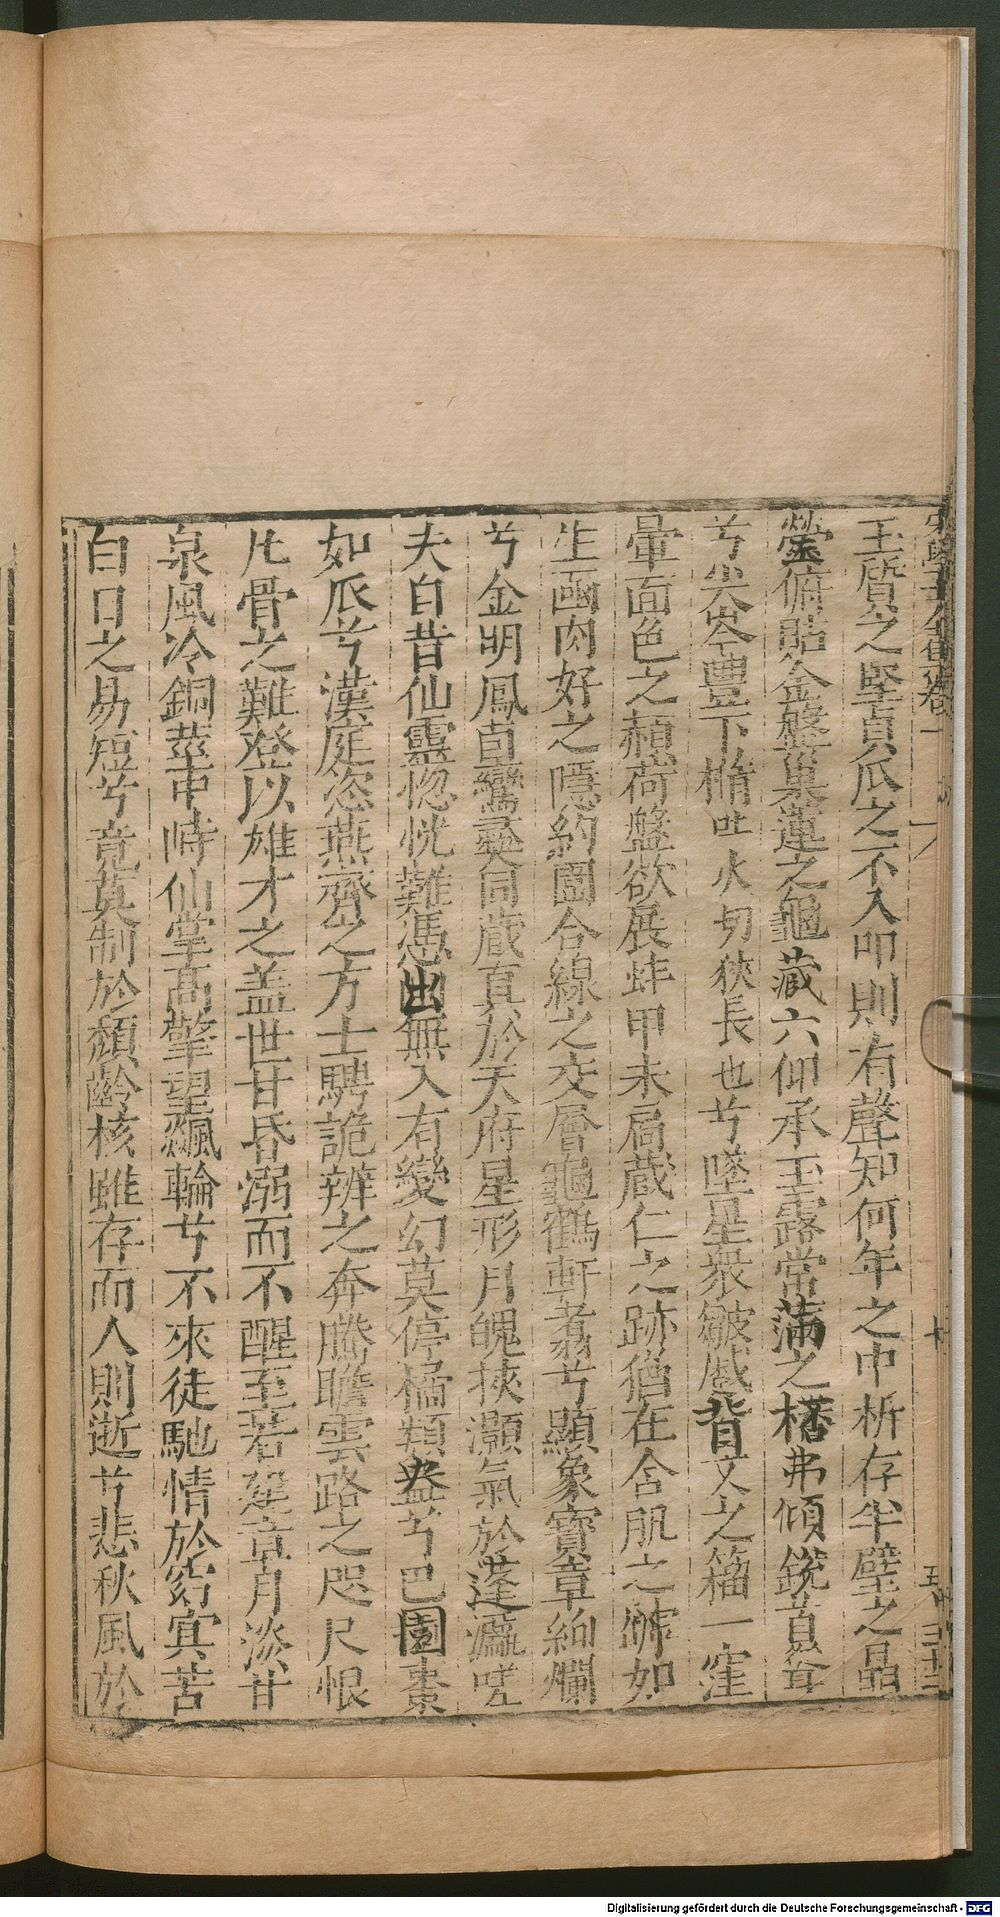 玉質之堅貞瓜之不入叩則有聲知何年之中析存半壁之晶
瑩俯貼金盤巢蓮之龜藏六仰承玉露常滿之橎弗傾銳首耸
兮尖岑豊下橢吐火切狹長也兮墜星衆皺蹙背文之籀一窪
暈面色之赬荷盤欲展蚌甲未扃蔵仁之跡猶在含肌之罅如
生凾肉好之隱約圖合線之交層龜鶴軒翥兮顯象寶章絢爛
兮金明鳳直鸞䕫同蔵真於天府星形月魄挾灝氣於蓬瀛嗟
夫自昔仙靈惚恍難憑出無入有變幻莫停橘類盎兮巴園棗
如瓜兮漢庭恣燕齊之方士騁詭辨之奔騰瞻雲路之咫尺恨
凡骨之難登以雄才之盖世甘昏溺而不醒至若建章月淡甘
泉風冷銅莖中峙仙掌高擎望飈輪兮不來徒馳情於窈寘苦
白日之易短兮竟莫制於頹齡核雖存而人則逝兮悲秋風於
Digitalisierung gefördert durch die Deutsche Forschungsgemeinschaft - DFG